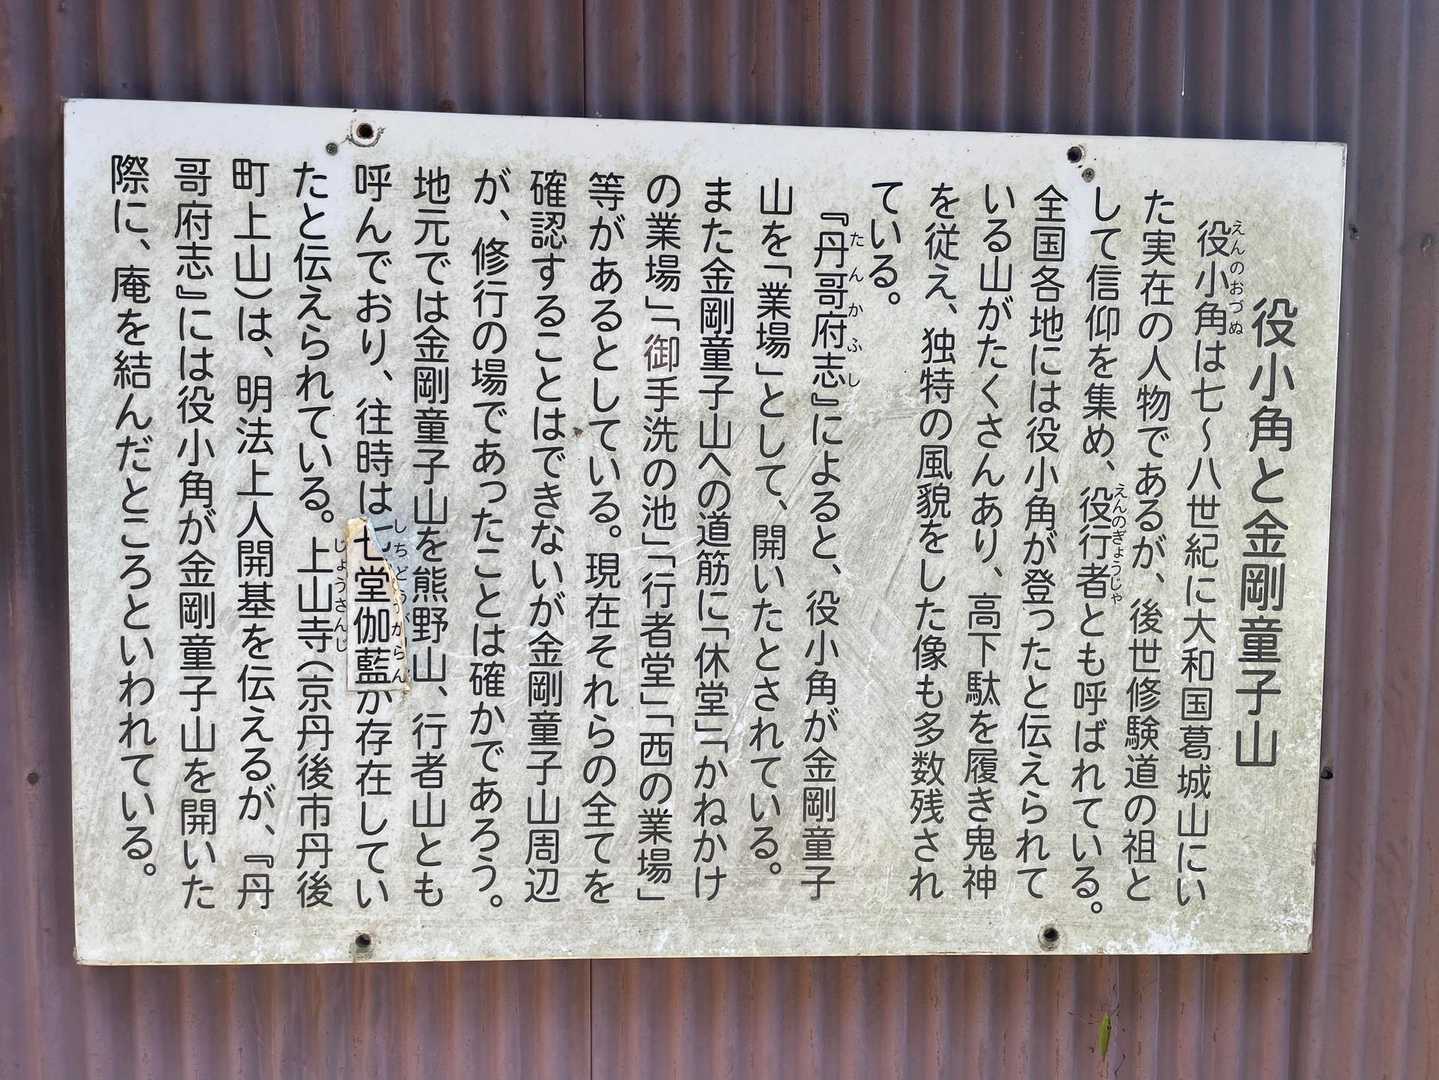 役小角と金剛童子山
えんのおづぬ
役小角は七～八世紀に大和国葛城山にい
た実在の人物であるが、後世修験道の祖と
えんのぎょうじゃ
して信仰を集め、役行者とも呼ばれている。
全国各地には役小角が登ったと伝えられて
いる山がたくさんあり、高下駄を履き鬼神
を従え、独特の風貌をした像も多数残され
ている。
たんかふし
『丹哥府志』によると、役小角が金剛童子
山を「業場」として、開いたとされている。
また金剛童子山への道筋に「休堂」「かねかけ
の業場」「御手洗の池」「行者堂」「西の業場」
等があるとしている。現在それらの全てを
確認することはできないが金剛童子山周辺
が、修行の場であったことは確かであろう。
地元では金剛童子山を熊野山、行者山とも
しちどうがらん
呼んでおり、往時は七堂伽藍が存在してい
じょうさんじ
たと伝えられている。上山寺（京丹後市丹後
町上山）は、明法上人開基を伝えるが、『丹
哥府志』には役小角が金剛童子山を開いた
際に、庵を結んだところといわれている。